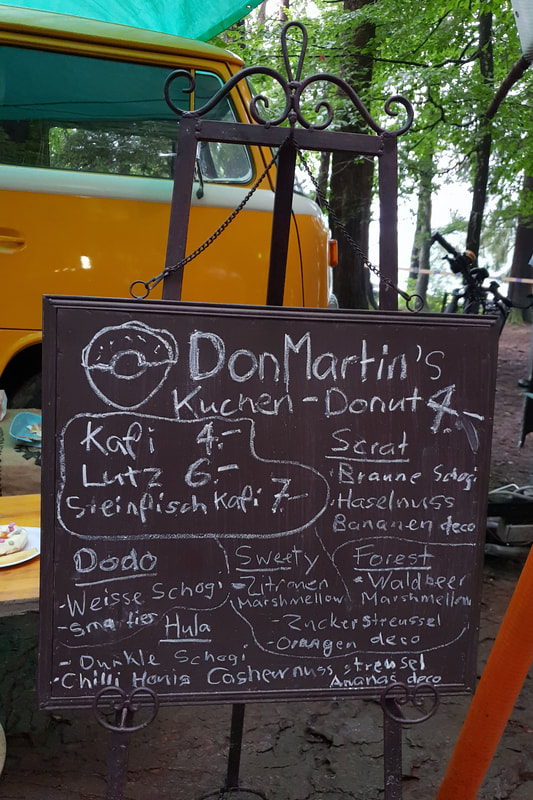 DonMartin's
Kuchen - Donut 4.-
Kafi 4.-
Lutz 6.-
Steinfisch Kafi 7.-
Scrat
- Braune Schogi
- Haselnuss
Bananen deco
Dodo
- Weisse Schogi
- Smarties
Sweety
- Zitronen
Marshmellow
- Zuckerstreussel
- Orangen deco
Forest
- Waldbeer
Marshmellow
Hula
- Dunkle Schogi
- Chilli Honig Cashewnuss streusel
Ananas deco